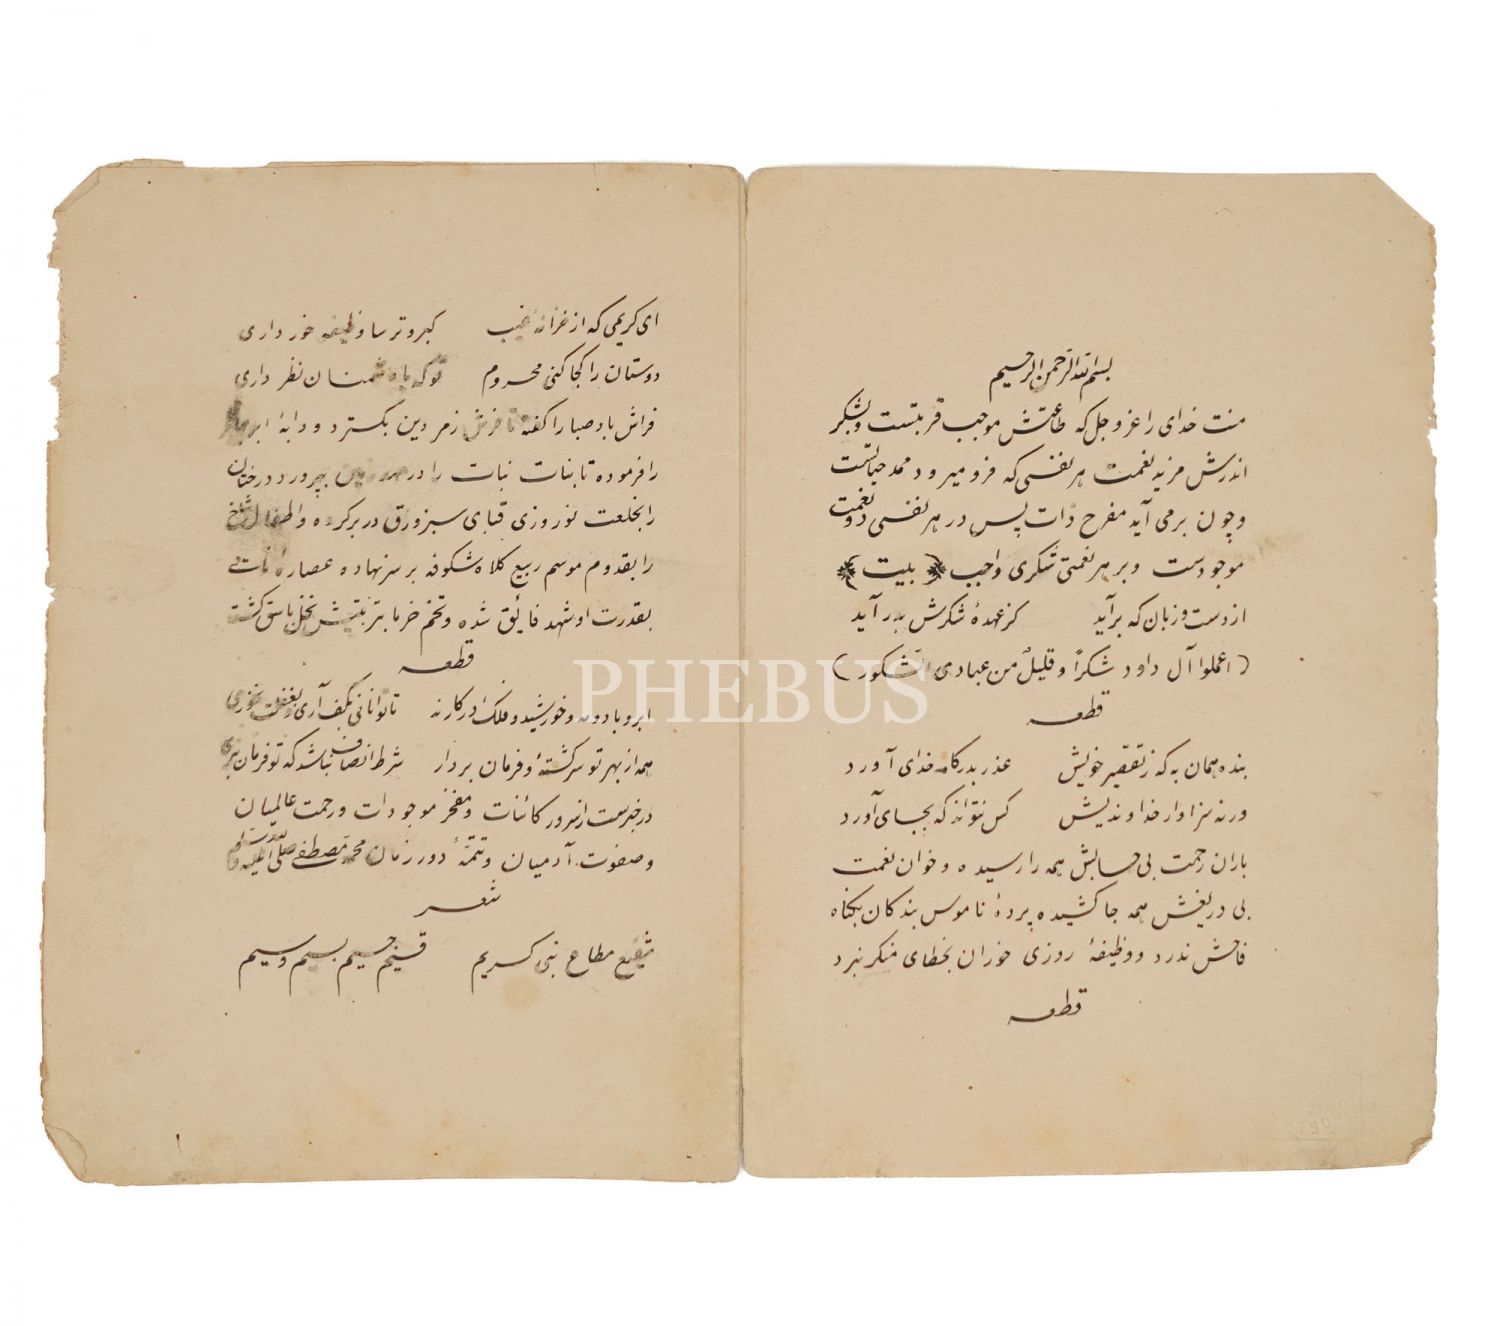 بسم الله الرحمن الرحیم
منت خدای را عز و جل که طاعتش موجب قربتست و بشکر
اندرش مزید نعمت هر نفسی که فرو میرود ممد حیاتست
و چون بر می آید مفرح ذات پس در هر نفسی دو نعمت
موجودست و بر هر نعمتی شکری واجب بیت
از دست و زبان که برآید کز عهدهٔ شکرش بدر آید
(اعملوا آل داود شکراً و قلیلٌ من عبادی الشکور)
قطعه
بنده همان به که ز تقصیر خویش عذر بدرکاه خدای آورد
ورنه سزاوار خداوندیش کس نتواند که بجای آورد
باران رحمت بی حسابش همه را رسیده و خوان نعمت
بی دریغش همه جا کشیده پردهٔ ناموس بندکان بکناه
فاحش ندرد و وظیفهٔ روزی خوران بخطای منکر نبرد
قطعه
ای کریمی که از خزانهٔ غیب کبر و ترسا وظیفه خور داری
دوستان را کجا کنی محروم تو که با دشمنان نظر داری
فراش باد صبا را کفته تا فرش زمردین بکسترد و دایهٔ ابر
را فرموده تا بنات نبات را در بپرورد درختان
را بخلعت نوروزی قبای سبز ورق در بر کرده و اطفال شاخ
را بقدوم موسم ربیع کلاه شکوفه بر سر نهاده عصارهٔ
بقدرت او شهد فایق شده و تخم خرما بتربیتش نخل باسق کشته
قطعه
ابر و باد و مه و خورشید و فلک در کارند تا تو نانی بکف آری و بغفلت نخوری
همه از بهر تو سرکشتهٔ و فرمان بردار شرط انصاف نباشد که تو فرمان نبری
در خبرست از سرور کائنات و مفخر موجودات و رحمت عالمیان
و صفوت آدمیان و تتمهٔ دور زمان محمد مصطفی صلی الله علیه وسلم
شعر
شفیع مطاع نبی کریم قسیم جسیم بسیم وسیم
PHEBUS